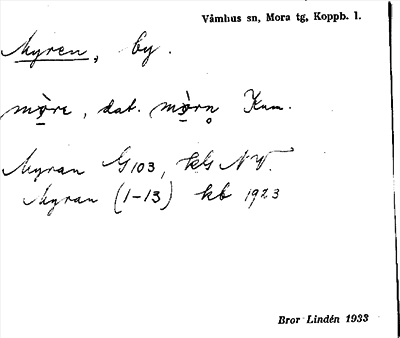 Våmhus sn, Mora tg, Koppb. l.
Myren, by.
mò̠re, dat. mò̠rn̥ Kum.
Myran G103, kls NV.
Myran (1-13) kb 1923
Bror Lindén 1933